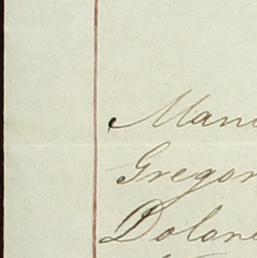 Man
Gregor
Dolan